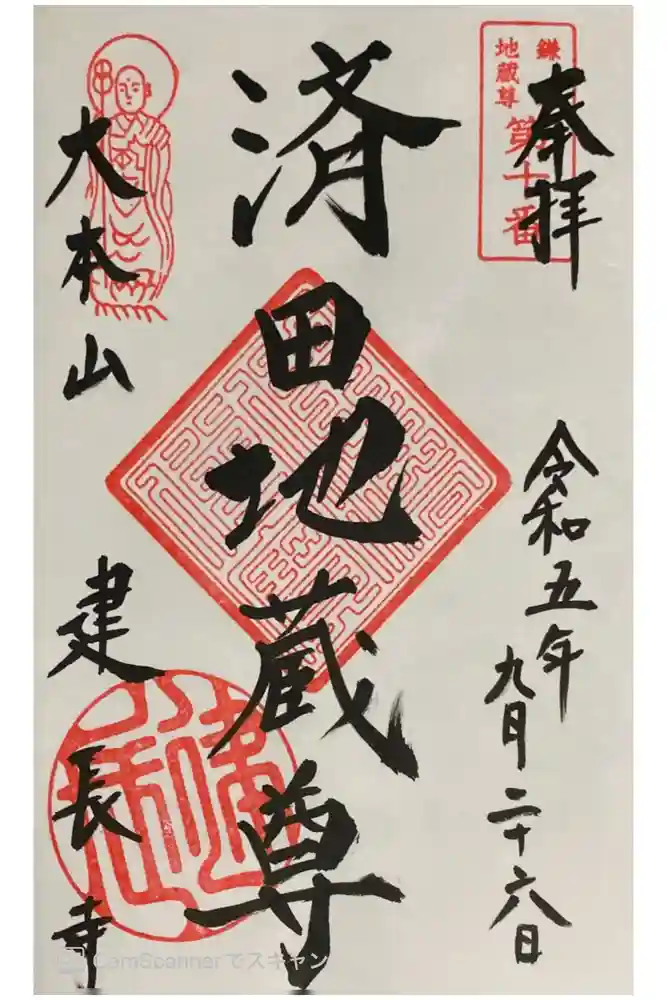 奉拝
鎌
地蔵尊
第十番
令和五年
九月二十六日
済田地蔵尊
大本山
建長寺
CamScannerでスキャン